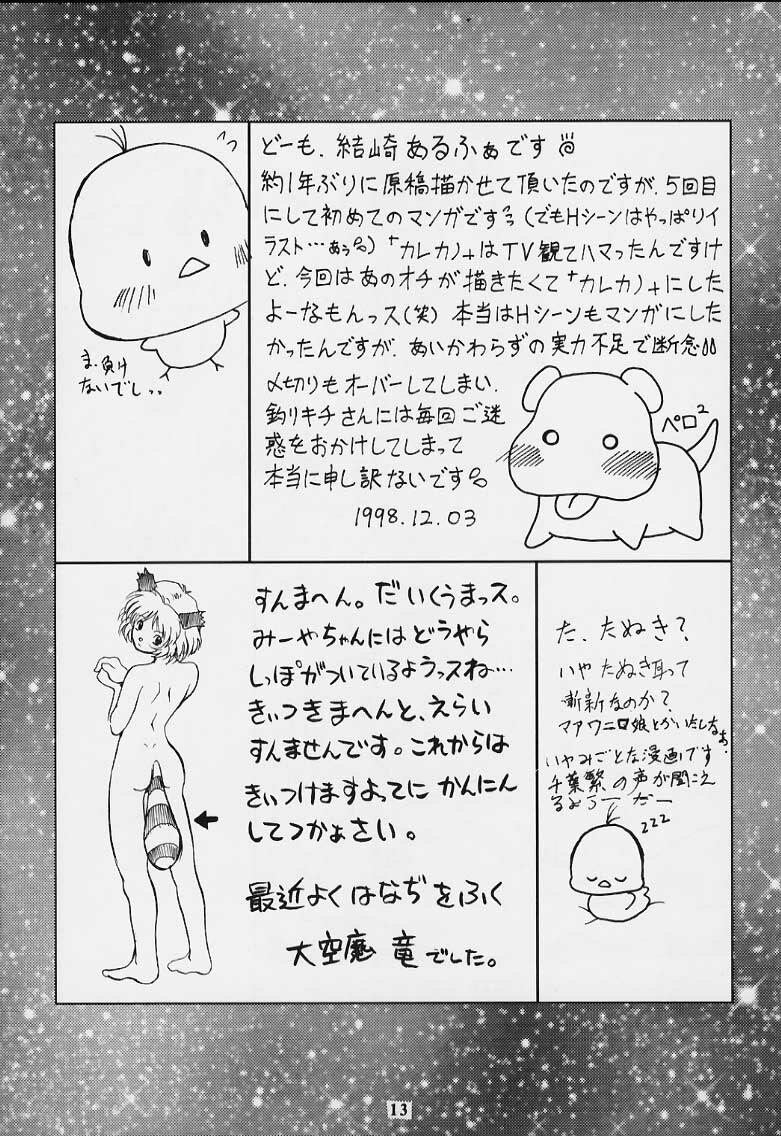 どーも、結崎あるふぁです
約1年ぶりに原稿描かせて頂いたのですが、5回目
にして初めてのマンガです (でもHシーンはやっぱりイ
ラスト…あぅ) 「カレカノ」はTV観てハマったんですけ
ど、今回はあのオチが描きたくて「カレカノ」にした
よーなもんっス(笑) 本当はHシーンもマンガにした
かったんですが、あいかわらずの実力不足で断念
〆切りもオーバーしてしまい、
釣りキチさんには毎回ご迷
惑をおかけしてしまって
本当に申し訳ないです
1998.12.03
ペロ2
ま、負け
ないでし、、
すんまへん。だいくうまっス。
みーやちゃんにはどうやら
しっぽがついているようっスね…
きぃつきまへんと、えらい
すんませんです。これからは
きぃつけますよってに かんにん
してつかぁさい。
最近よくはなぢをふく
大空魔 竜でした。
た、たぬき?
いや たぬき耳って
斬新なのか?
マアワニロ娘とかいたしなぁ、
いやみごとな漫画です
千葉繁の声が聞こえ
るよぅーだー
zzz
13